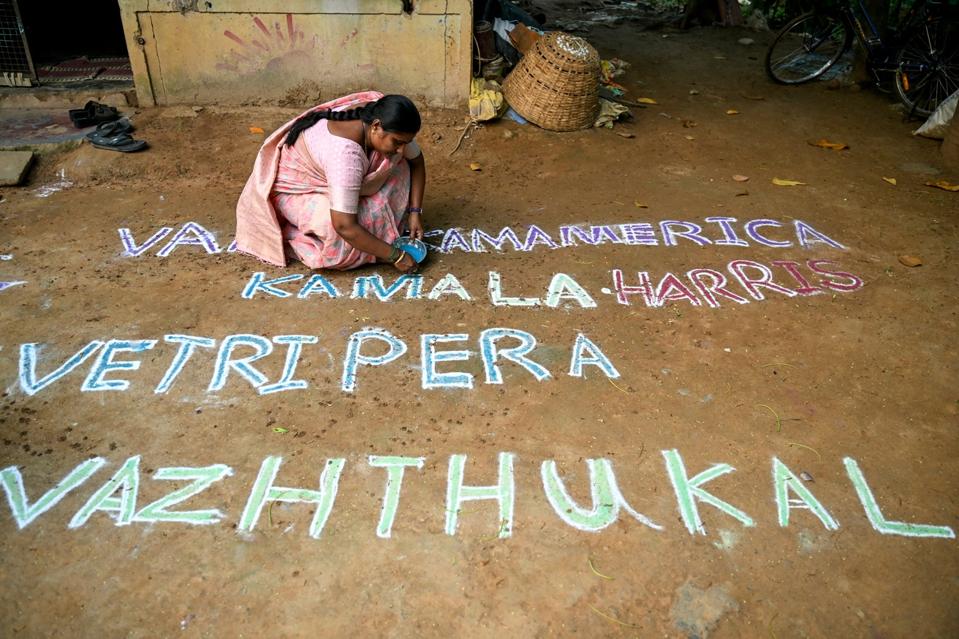 AMERICA
KAMALA HARRIS
VETRI PERA
VAZHTHUKAL